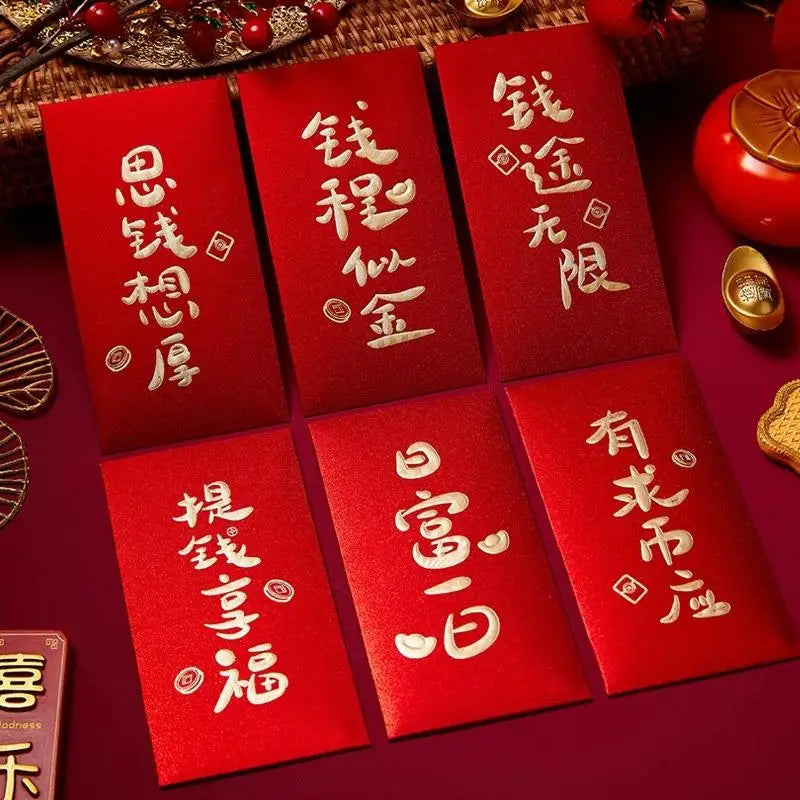 思钱想厚
钱程似金
钱途无限
提钱享福
日富一日
有求币应
喜
乐